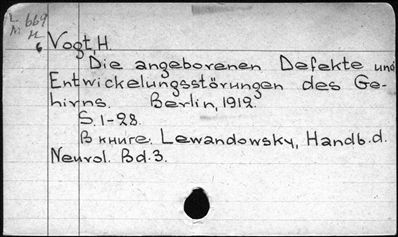 L 669
M H
6 Vogt, H.
Die angeborenen Defekte und
Entwickelungsstörungen des Ge-
hirns. Berlin, 1912.
S. 1-28.
В книге: Lewandowsky, Handb. d.
Neurol. Bd. 3.